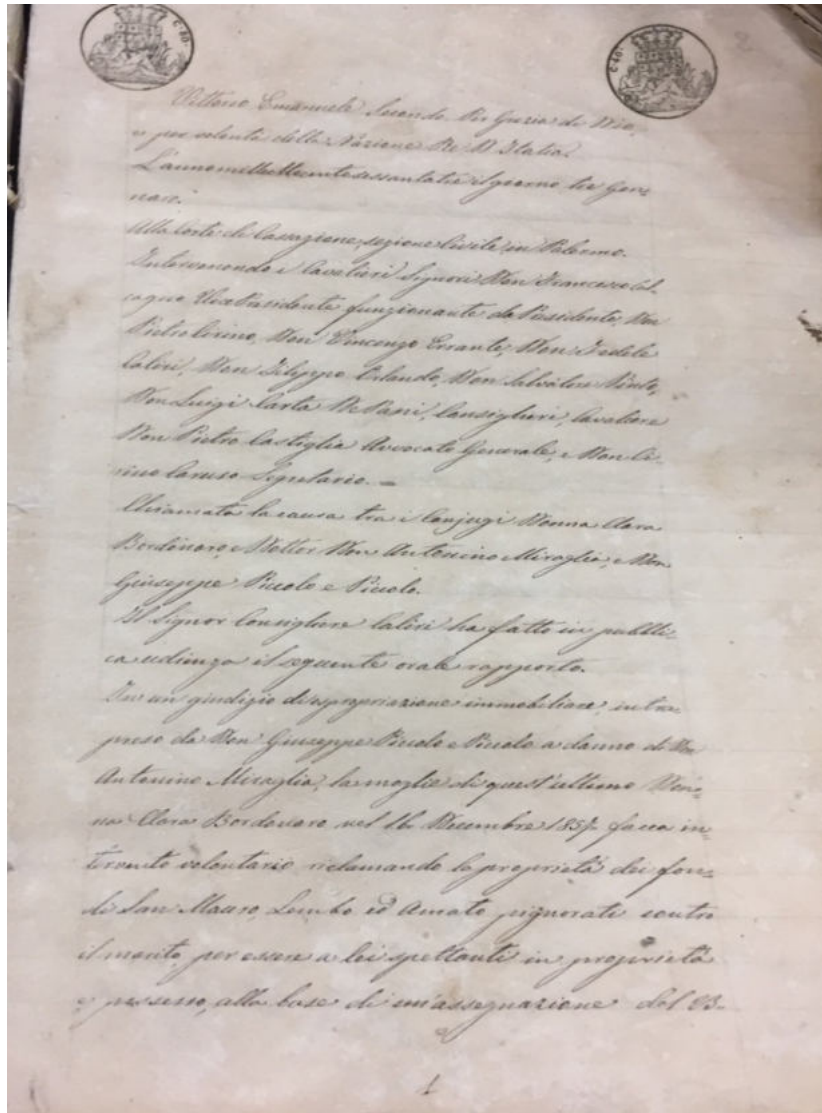 C. 40.
C. 40.
2
Vittorio Emanuele Secondo Per Grazia di Dio,
e per volontà della Nazione Re D'Italia.
L'anno mille ottocento sessantatre il giorno tre Gen-
naro.
Alla Corte di Cassazione, sezione Civile in Palermo.
Intervenendo i Cavalieri Signori Don Francesco
Vice Presidente funzionante da Presidente, Don
Pietro Cirino, Don Vincenzo Errante, Don Fedele
Caliri, Don Filippo Orlando, Don Salvatore
Don Luigi Carta De Pani, Consiglieri, Cavaliere
Don Pietro Castiglia Avvocato Generale, e Don Ci-
rino Caruso Segretario. =
Chiamata la causa tra i Conjugi Donna Clara
Bordonaro, e Dottor Don Antonino Miraglia, e Don
Giuseppe Piccolo e Piccolo.
Il Signor Consigliere Caliri ha fatto in pubbli-
ca udienza il seguente orale rapporto.
In un giudizio di espropriazione immobiliare, intra-
preso da Don Giuseppe Piccolo e Piccolo a danno di Don
Antonino Miraglia, la moglie di quest'ultimo Don-
na Clara Bordonaro nel 16 Decembre 1857 facea in-
tervento volontario reclamando la proprietà dei fon-
di San Mauro, Lembo ed Amato pignorati contro
il marito, per essere a lei spettanti in proprietà
e possesso, alla base di un'assegnazione del 13-
1